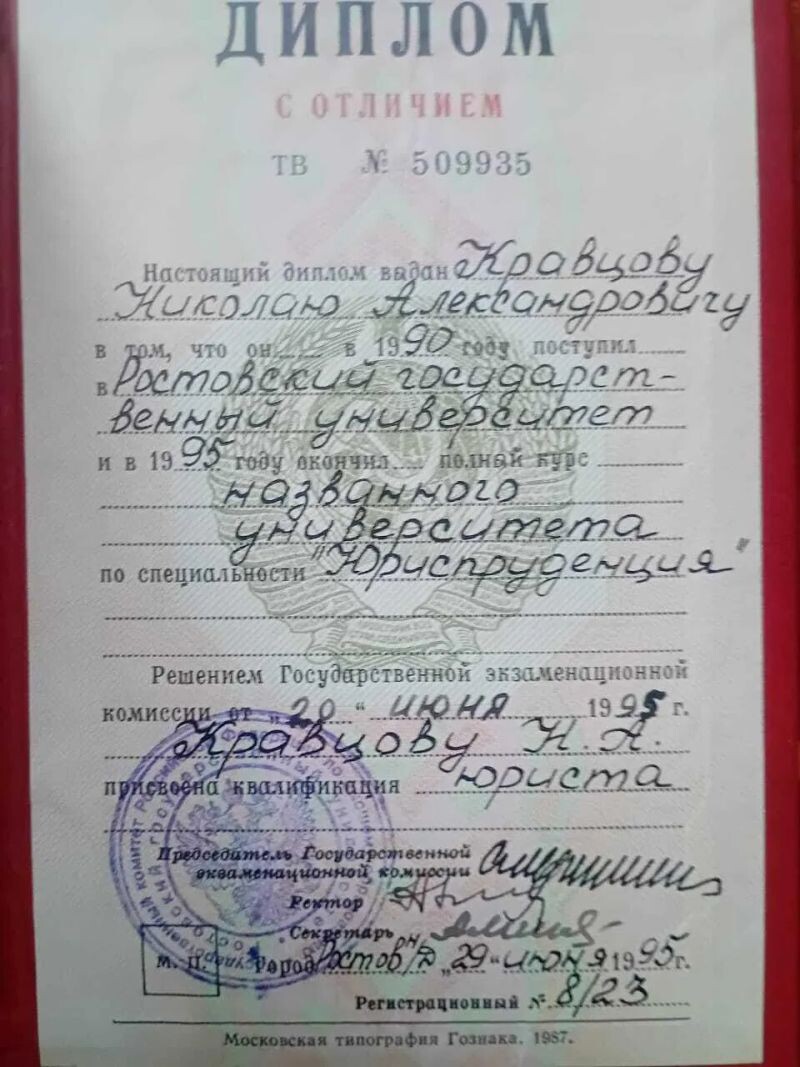 ДИПЛОМ
С ОТЛИЧИЕМ
ТВ № 509935
Настоящий диплом выдан Кравцову
Николаю Александровичу
в том, что он в 1990 году поступил
в Ростовский государст-
венный университет
и в 1995 году окончил полный курс
названного
университета
по специальности "Юриспруденция"
Решением Государственной экзаменационной
комиссии от „20“ июня 1995 г.
Кравцову Н. А.
присвоена квалификация юриста
Председатель Государственной
экзаменационной комиссии
Ректор
Секретарь
М. П. Город Ростов н/Д „29“ июня 1995 г.
Регистрационный № 8/23
Московская типография Гознака. 1987.